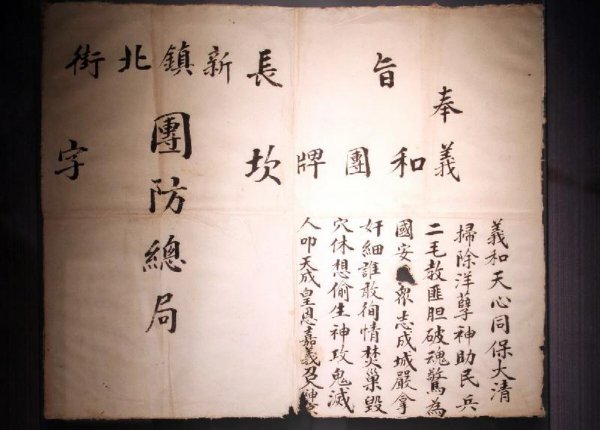 奉旨
義和團牌
義和天心同保大清
掃除洋孽神助民兵
二毛教匪胆破魂驚為
國安眾志成城嚴拿
奸細誰敢徇情焚巢毀
穴休想偷生神攻鬼滅
人叩天成皇恩嘉義
長坎
新鎮北街
團防總局
字